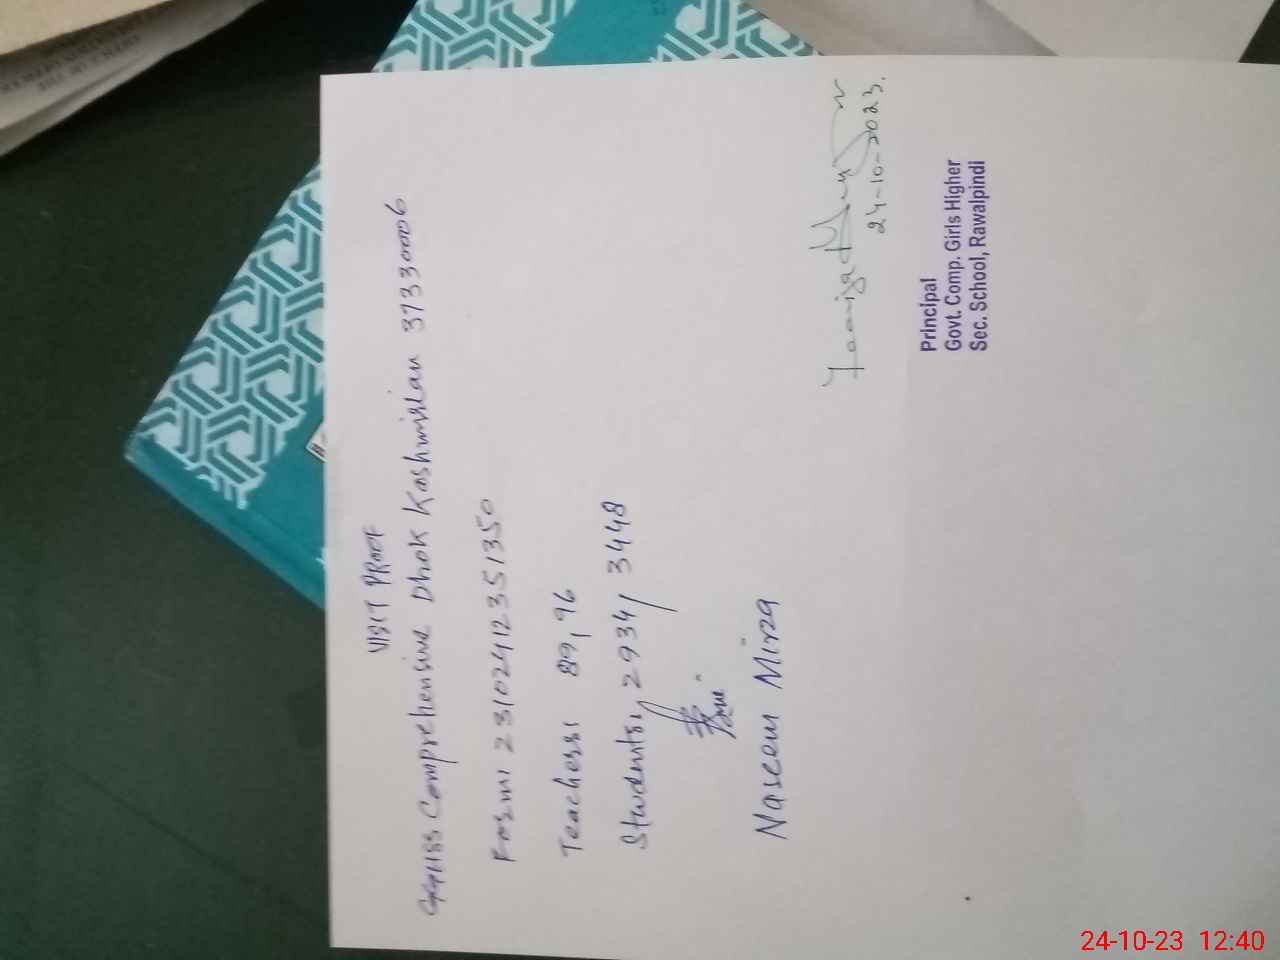 VISIT PROOF
GGHSS Comprehensive Dhok Kashmirian 37330006
Form: 23102412351350
Teachers: 89, 96
Students, 2934/ 3448
Naseem Mirza
24-10-2023.
Principal
Govt. Comp. Girls Higher
Sec. School, Rawalpindi
24-10-23 12:40